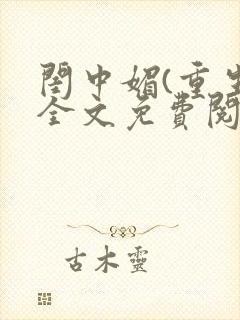 閨中媚(重生
全文免費閱
古木靈